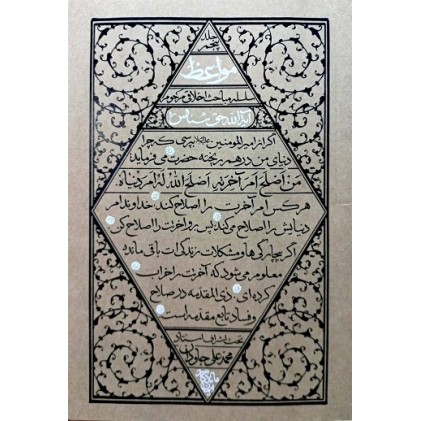 جلد پنجم
مواعظ
سلسله مباحث اخلاقی مرحوم
آیة الله حق شناس
اگر از امیرالمومنین بپرسی که چرا
دنیای من در هم ریخته حضرت می فرماید:
مَن اَصلَحَ اَمرَ آخِرَتِهِ اَصلَحَ اللهُ لَهُ اَمرَ دُنیاهُ
هر کس امر آخرت را اصلاح کند، خداوند امر
دنیایش را اصلاح می کند. پس رو آخرت را اصلاح کن
اگر بیچارگی ها و مشکلات زندگی ات باقی مانده
معلوم می شود که آخرتت را خراب
کرده ای. ذی المقدمه در صلاح
و فساد تابع مقدمه است
تحت اشراف استاد
محمد علی جاودان